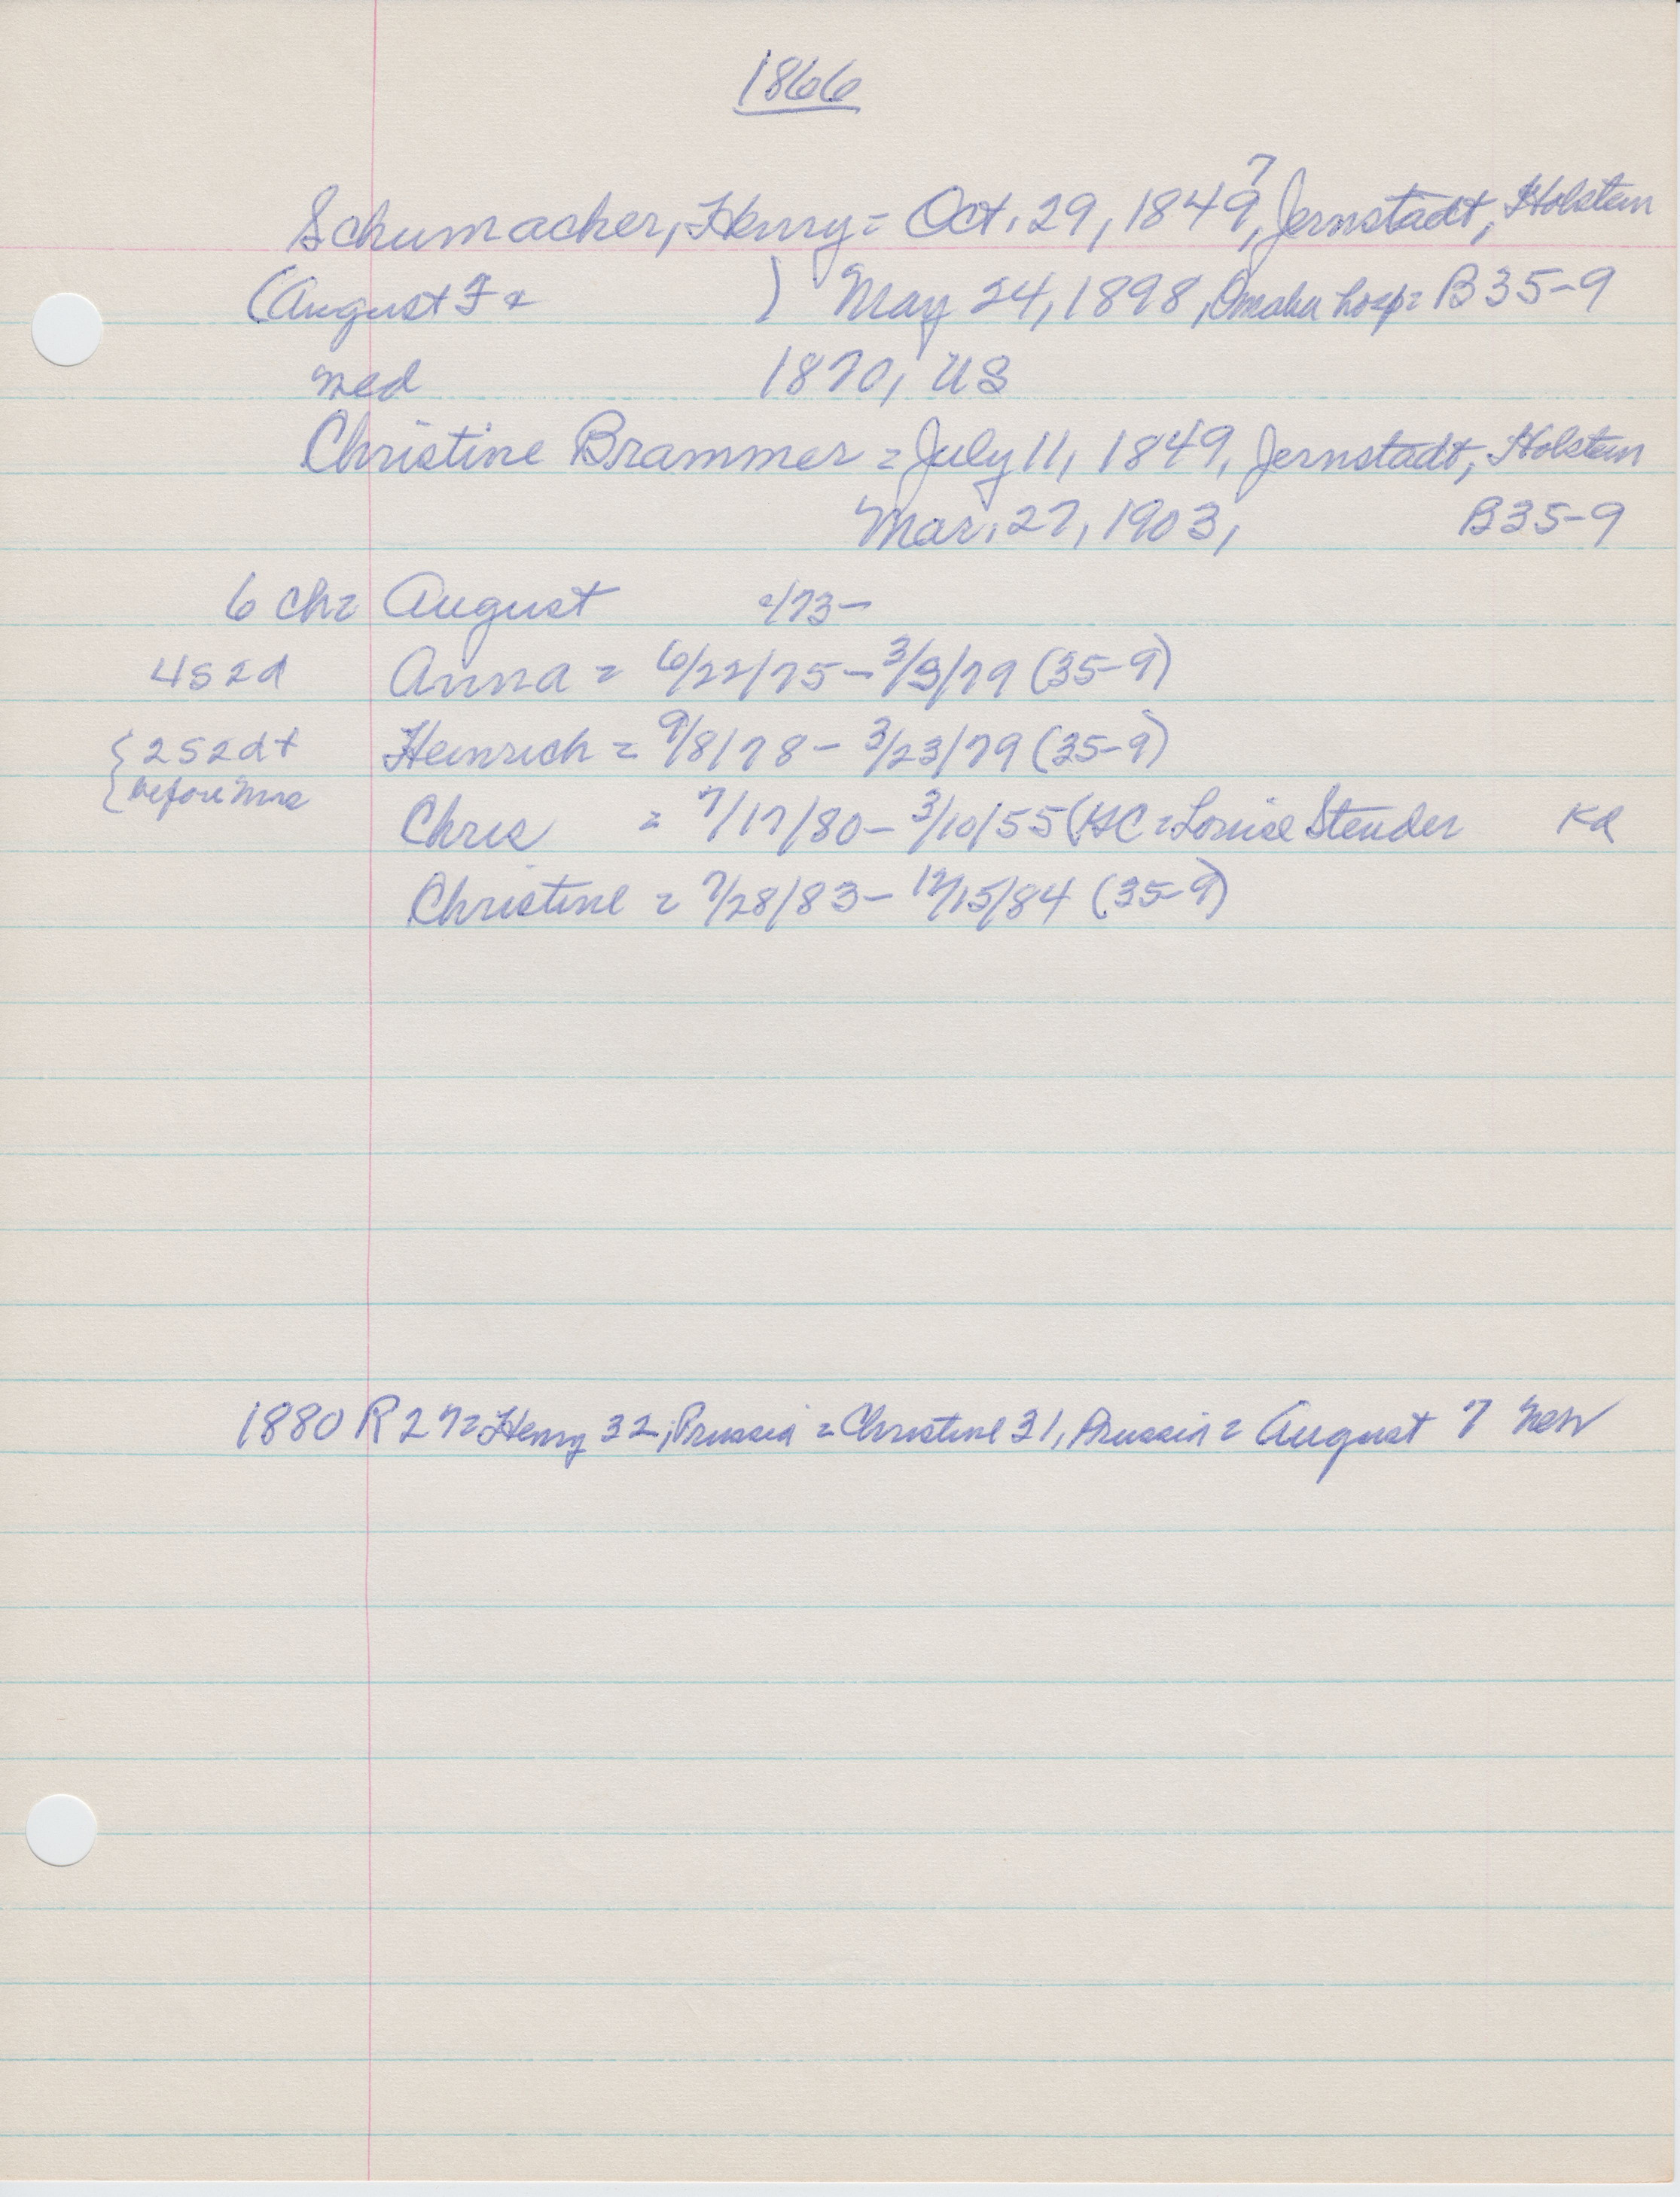 1866
7
Schumacher, Henry = Oct. 29, 1849, Jernstadt, Holstein
(August F & ) May 24, 1898, Omaha hosp = B35-9
med 1870, US
Christine Brammer = July 11, 1849, Jernstadt, Holstein
Mar. 27, 1903, B35-9
6 ch = August c/73-
4s 2d Anna = 6/22/75 - 3/3/79 (35-9)
{ 2s 2d + Heinrich = 9/8/78 - 3/23/79 (35-9)
{ before
Chris = 7/17/80 - 3/10/55 (HC = Louise Stender Kd
Christine = 7/28/83 - 12/15/84 (35-9)
1880 R 27 = Henry 32, Prussia = Christine 31, Prussia = August 7 Neb